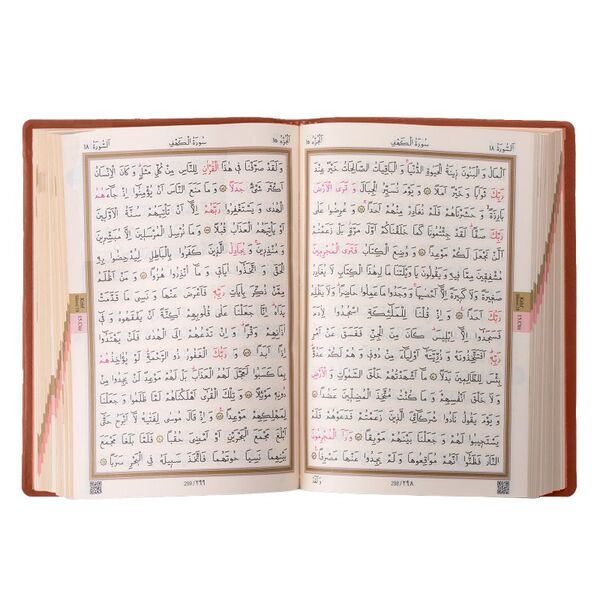 اَلسُّورَةُ ١٨ سُورَةُ الْكَهْفِ اَلْجُزْءُ ١٥
اَلْمَالُ وَ الْبَنُونَ زِينَةُ الْحَيٰوةِ الدُّنْيَاۚ وَ الْبَاقِيَاتُ الصَّالِحَاتُ خَيْرٌ عِنْدَ
رَبِّكَ ثَوَابًا وَ خَيْرٌ اَمَلًا وَ يَوْمَ نُسَيِّرُ الْجِبَالَ وَ تَرَى الْاَرْضَ
بَارِزَةًۙ وَ حَشَرْنَاهُمْ فَلَمْ نُغَادِرْ مِنْهُمْ اَحَدًاۚ وَ عُرِضُوا عَلٰى
رَبِّكَ صَفًّاۜ لَقَدْ جِئْتُمُونَا كَمَا خَلَقْنَاكُمْ اَوَّلَ مَرَّةٍۘ بَلْ زَعَمْتُمْ اَلَّنْ نَجْعَلَ
لَكُمْ مَوْعِدًا وَ وُضِعَ الْكِتَابُ فَتَرَى الْمُجْرِمِينَ
مُشْفِقِينَ مِمَّا فِيهِ وَ يَقُولُونَ يَا وَيْلَتَنَا مَا لِهٰذَا الْكِتَابِ لَا يُغَادِرُ
صَغِيرَةً وَ لَا كَبِيرَةً اِلَّٓا اَحْصٰيهَاۚ وَ وَجَدُوا مَا عَمِلُوا حَاضِرًاۜ وَ لَا يَظْلِمُ
رَبُّكَ اَحَدًا وَ اِذْ قُلْنَا لِلْمَلٰٓئِكَةِ اسْجُدُوا لِاٰدَمَ
فَسَجَدُٓوا اِلَّٓا اِبْلِيسَۜ كَانَ مِنَ الْجِنِّ فَفَسَقَ عَنْ اَمْرِ
رَبِّهٖۜ اَفَتَتَّخِذُونَهُ وَ ذُرِّيَّتَهُٓ اَوْلِيَٓاءَ مِنْ دُونِي وَ هُمْ لَكُمْ عَدُوٌّۜ
بِئْسَ لِلظَّالِمِينَ بَدَلًا مَٓا اَشْهَدْتُهُمْ خَلْقَ السَّمٰوَاتِ وَ الْاَرْضِ
وَ لَا خَلْقَ اَنْفُسِهِمْۖ وَ مَا كُنْتُ مُتَّخِذَ الْمُضِلِّينَ عَضُدًا
وَ يَوْمَ يَقُولُ نَادُوا شُرَكَٓائِيَ الَّذِينَ زَعَمْتُمْ فَدَعَوْهُمْ فَلَمْ
يَسْتَجِيبُوا لَهُمْ وَ جَعَلْنَا بَيْنَهُمْ مَوْبِقًا وَ رَاَ الْمُجْرِمُونَ
النَّارَ فَظَنُّٓوا اَنَّهُمْ مُوَاقِعُوهَا وَ لَمْ يَجِدُوا عَنْهَا مَصْرِفًا
وَ لَقَدْ
298/٢٩٨
Kehf
15.Cüz
اَلسُّورَةُ ١٨ سُورَةُ الْكَهْفِ اَلْجُزْءُ ١٥
وَ لَقَدْ صَرَّفْنَا فِي هٰذَا الْقُرْاٰنِ لِلنَّاسِ مِنْ كُلِّ مَثَلٍۜ وَ كَانَ الْاِنْسَانُ
اَكْثَرَ شَيْءٍ جَدَلًا وَ مَا مَنَعَ النَّاسَ اَنْ يُؤْمِنُٓوا اِذْ جَٓاءَهُمُ
الْهُدٰى وَ يَسْتَغْفِرُوا رَبَّهُمْ اِلَّٓا اَنْ تَأْتِيَهُمْ سُنَّةُ الْاَوَّلِينَ
اَوْ يَأْتِيَهُمُ الْعَذَابُ قُبُلًا وَ مَا نُرْسِلُ الْمُرْسَلِينَ اِلَّا مُبَشِّرِينَ
وَ مُنْذِرِينَۚ وَ يُجَادِلُ الَّذِينَ كَفَرُوا بِالْبَاطِلِ لِيُدْحِضُوا بِهِ
الْحَقَّ وَ اتَّخَذُٓوا اٰيَاتِي وَ مَٓا اُنْذِرُوا هُزُوًا وَ مَنْ اَظْلَمُ
مِمَّنْ ذُكِّرَ بِاٰيَاتِ رَبِّهٖ فَاَعْرَضَ عَنْهَا وَ نَسِيَ مَا قَدَّمَتْ
يَدَاهُۜ اِنَّا جَعَلْنَا عَلٰى قُلُوبِهِمْ اَكِنَّةً اَنْ يَفْقَهُوهُ وَ فِٓي
اٰذَانِهِمْ وَقْرًاۜ وَ اِنْ تَدْعُهُمْ اِلَى الْهُدٰى فَلَنْ يَهْتَدُٓوا
اِذًا اَبَدًا وَ رَبُّكَ الْغَفُورُ ذُو الرَّحْمَةِۜ لَوْ يُؤَاخِذُهُمْ
بِمَا كَسَبُوا لَعَجَّلَ لَهُمُ الْعَذَابَۜ بَلْ لَهُمْ مَوْعِدٌ لَنْ يَجِدُوا مِنْ
دُونِهٖ مَوْئِلًا وَ تِلْكَ الْقُرٰٓى اَهْلَكْنَاهُمْ لَمَّا ظَلَمُوا وَ جَعَلْنَا
لِمَهْلِكِهِمْ مَوْعِدًا وَ اِذْ قَالَ مُوسٰى لِفَتٰيهُ لَٓا اَبْرَحُ حَتّٰٓى
اَبْلُغَ مَجْمَعَ الْبَحْرَيْنِ اَوْ اَمْضِيَ حُقُبًا فَلَمَّا بَلَغَا مَجْمَعَ
بَيْنِهِمَا نَسِيَا حُوتَهُمَا فَاتَّخَذَ سَبِيلَهُ فِي الْبَحْرِ سَرَبًا
299/٢٩٩
Kehf
15.Cüz